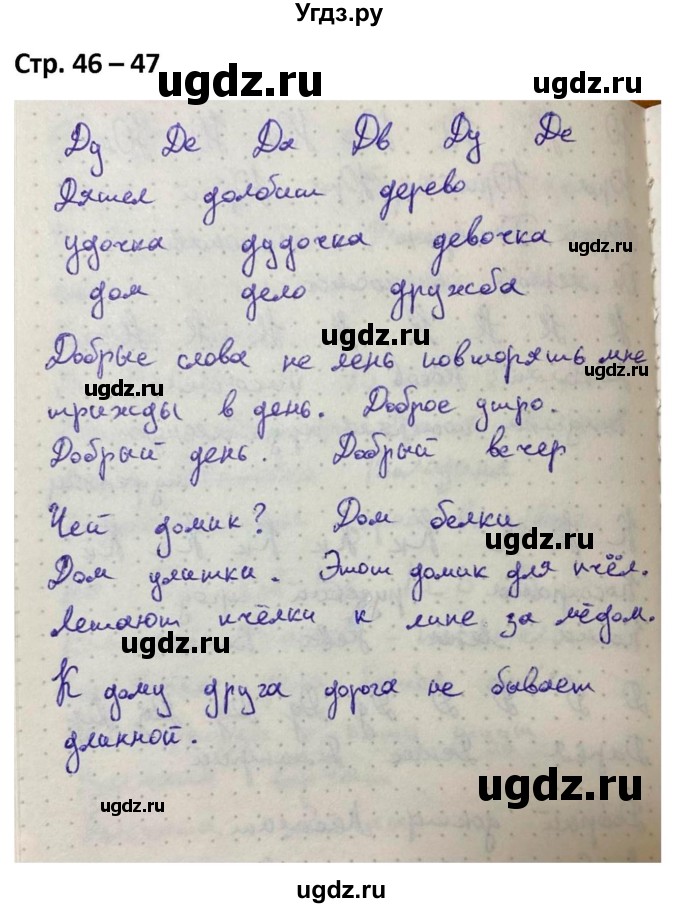 Угдз.ру
Стр. 46 – 47
ugdz.ru
Ду Де Дя Дв Ду Де
Дятел долбит дерево
ugdz.ru
удочка дудочка девочка
ugdz.ru
дом дело дружба
ugdz.ru
Добрые слова не лень повторять мне
ugdz.ru
ugdz.ru
трижды в день. Доброе утро.
Добрый день. Добрый вечер
ugdz.ru
Чей домик? Дом белки
ugdz.ru
Дом улитки. Этот домик для пчёл.
Летают пчёлки к липе за мёдом.
ugdz.ru
ugdz.ru
К дому друга дорога не бывает
длинной.
ugdz.ru
ugdz.ru
ugdz.ru